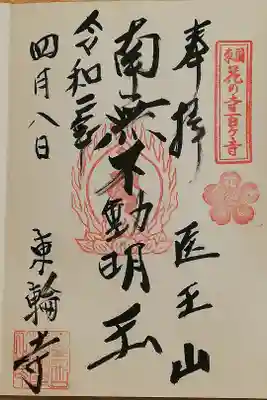 東国花の寺百ヶ寺
奉拝 医王山
南無不動明王
令和二年
四月八日 東輪寺